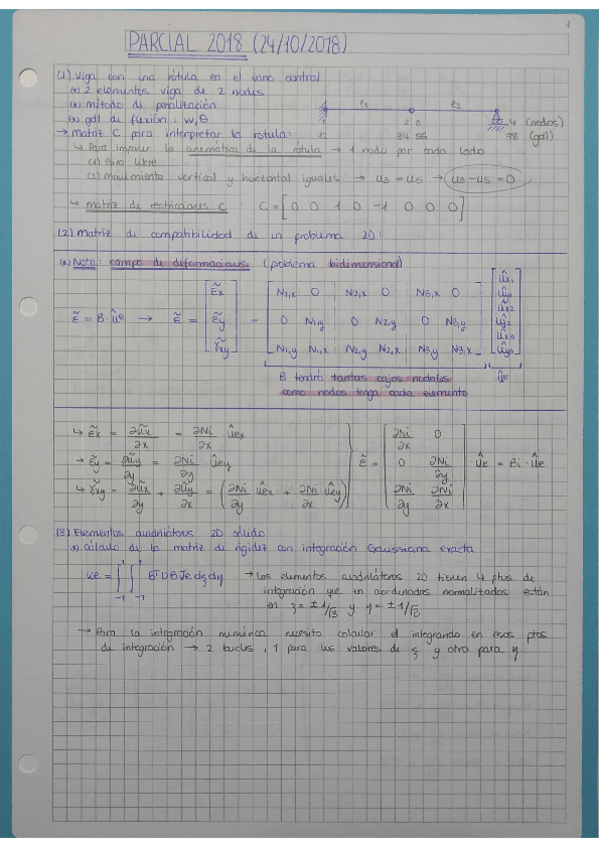 PARCIAL 2018 (24/10/2018)
(1) Viga con una rótula en el vano central
2 elementos viga de 2 nodos
método de penalización
gdl de flexión: w, θ
e1 e2
2 3 4 (nodos)
34 56 78 (gdl)
→ matriz C para interpretar la rotula:
↳ Para imponer la cinemática de la rótula → 1 nodo por cada lado
(1) Giro libre
(2) movimiento vertical y horizontal iguales → u3 = u5 → u3 - u5 = 0
↳ matriz de restricciones C C = [0 0 1 0 -1 0 0 0]
(2) Matriz de compatibilidad de un problema 2D:
Nota: campo de deformaciones (problema bidimensional)
ε̃ = B · ûe → ε̃ = [ε̃x ε̃y γ̃xy] =
N1,x 0 N2,x 0 N3,x 0
0 N1,y 0 N2,y 0 N3,y
N1,y N1,x N2,y N2,x N3,y N3,x
ûx1 ûy1 ûx2 ûy2 ûx3 ûy3
ûe
B tendrá tantas cajas nodales
como nodos tenga cada elemento
↳ ε̃x = ∂ũx/∂x = ∂Ni/∂x ûex
→ ε̃y = ∂ũy/∂y = ∂Ni/∂y · ûey
↳ γ̃xy = ∂ũx/∂y + ∂ũy/∂x = (∂Ni/∂y ûex + ∂Ni/∂x ûey)
ε̃ = [∂Ni/∂x 0 ; 0 ∂Ni/∂y ; ∂Ni/∂y ∂Ni/∂x] · ûe = Bi · ûe
(3) Elementos cuadriláteros 2D sólido
cálculo de la matriz de rigidez con integración Gaussiana exacta
Ke = ∫₋₁¹ ∫₋₁¹ BᵀDB Je dξ dη → Los elementos cuadriláteros 2D tienen 4 ptos de
integración que en coordenadas normalizadas están
en ξ = ± 1/√3 y η = ± 1/√3
→ Para la integración numérica necesito calcular el integrando en esos ptos
de integración → 2 bucles, 1 para los valores de ξ y otro para η